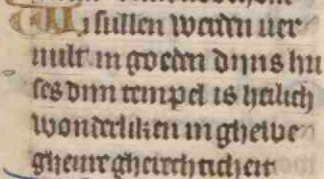 Wi sullen werden ver
vult in goeden dijns hu
ses dijn tempel is heilich
wonderliken in ghelve
gherechticheit